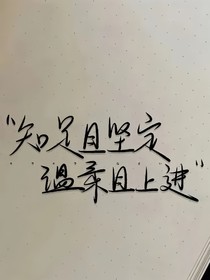 “知足且坚定
温柔且上进”